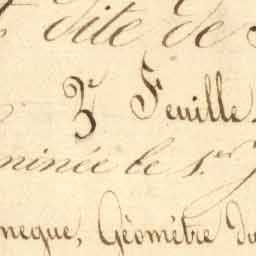 dite de
3e Feuille.
minée le 1er J
negue, Géomètre du